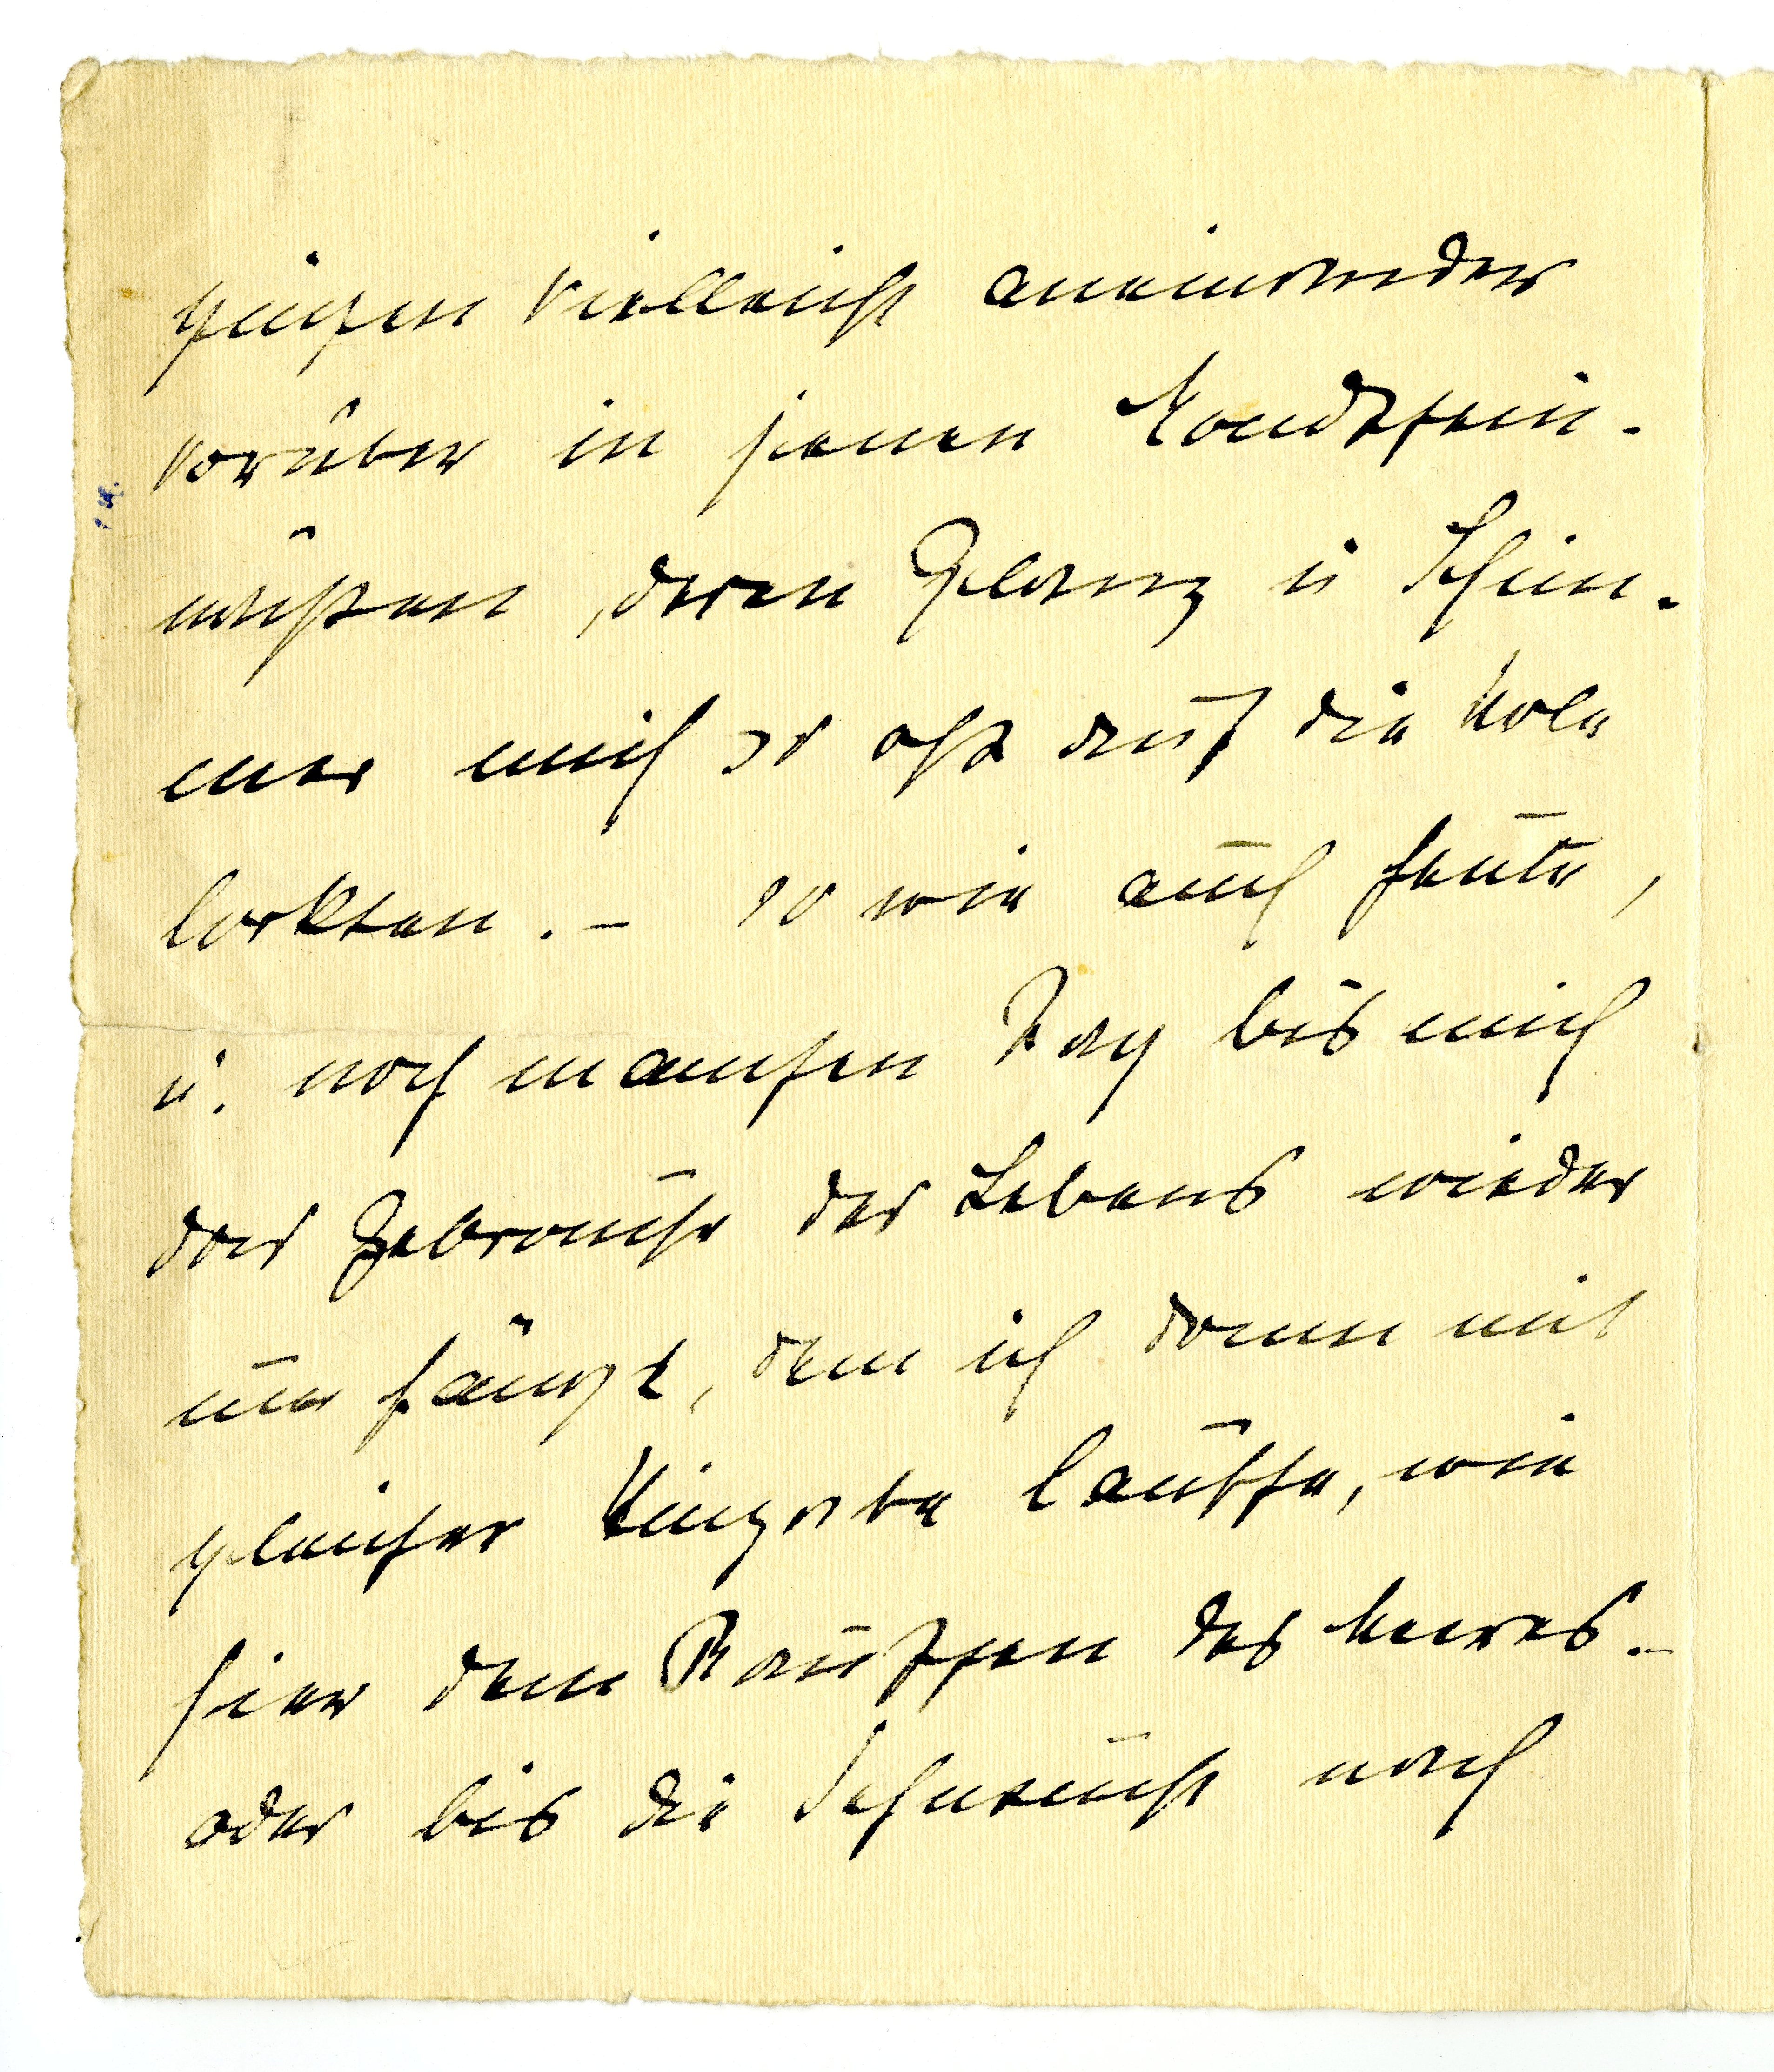 gingen vielleicht aneinander
vorüber in jenen Mondschein-
nächten, deren Glanz u Schim-
mer mich so oft auf die Mole
lockten. – so wie auch heute,
u. noch manchen Tag bis mich
das Gebrause des Lebens wieder
um fängt, dem ich dann mit
gleicher Hingabe lausche, wie
hier dem Rauschen des Meeres. –
oder bis die Sehnsucht nach